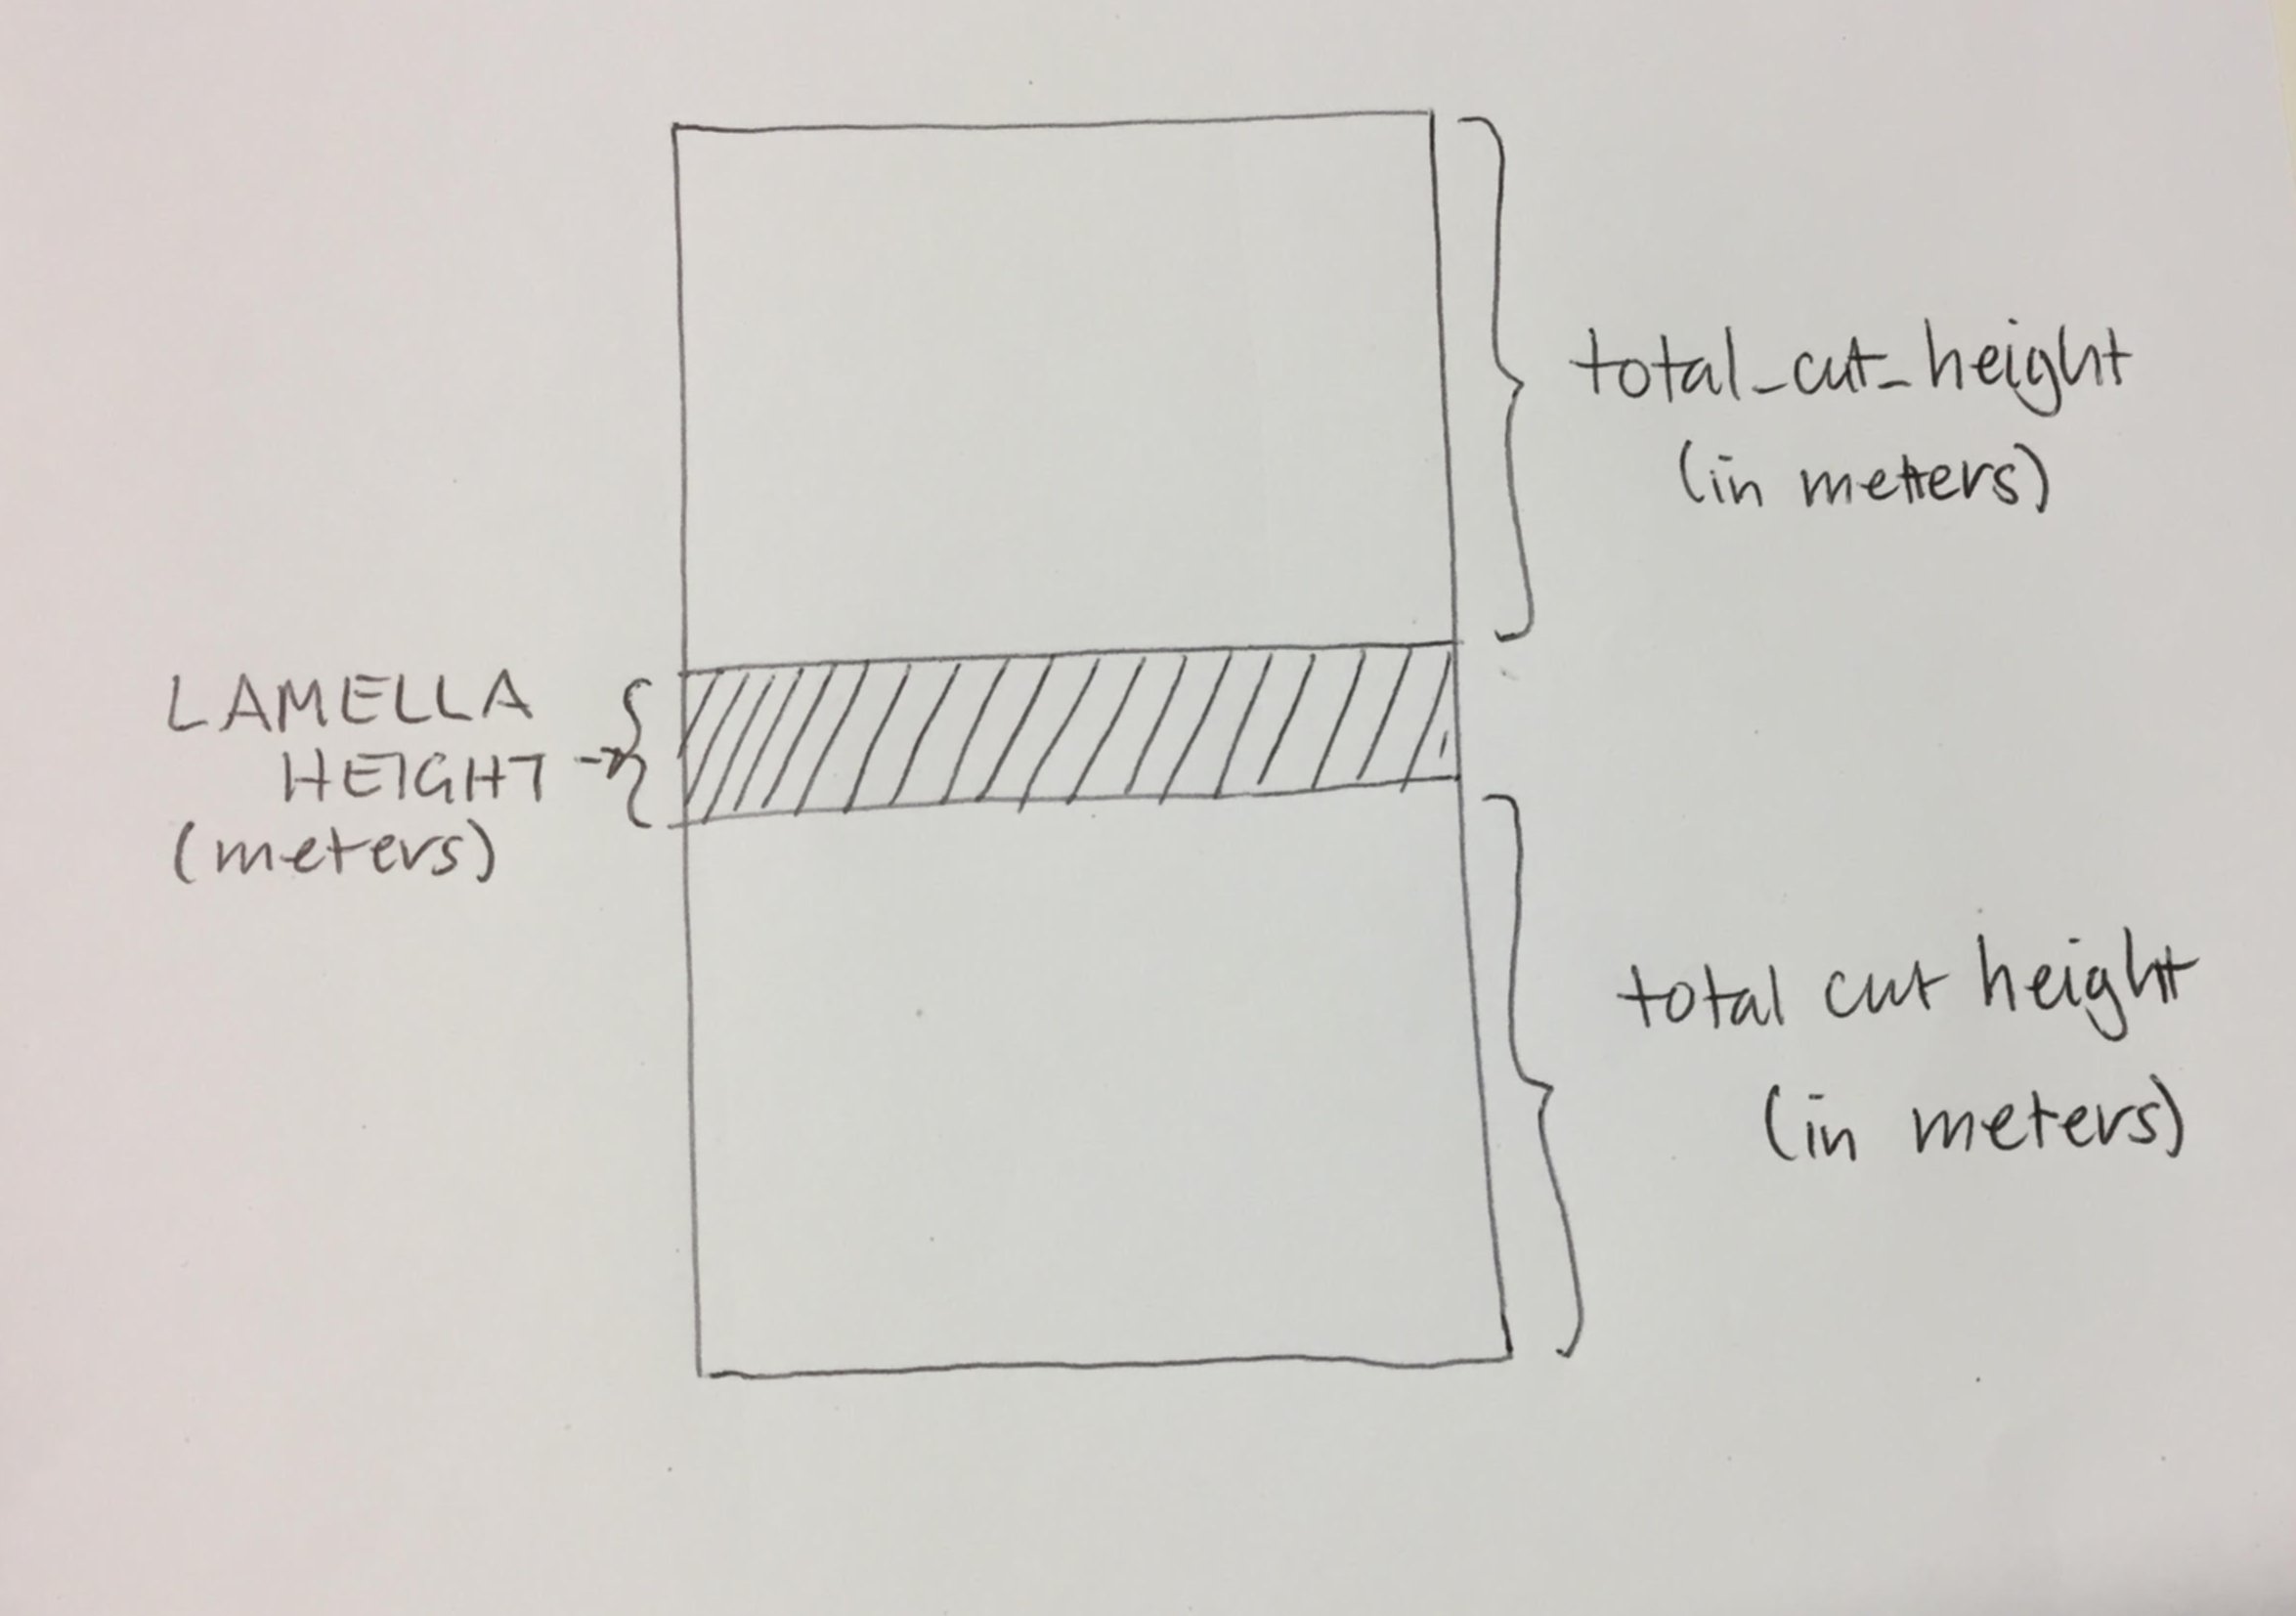 total_cut_height
(in meters)
LAMELLA
HEIGHT
(meters)
total cut height
(in meters)